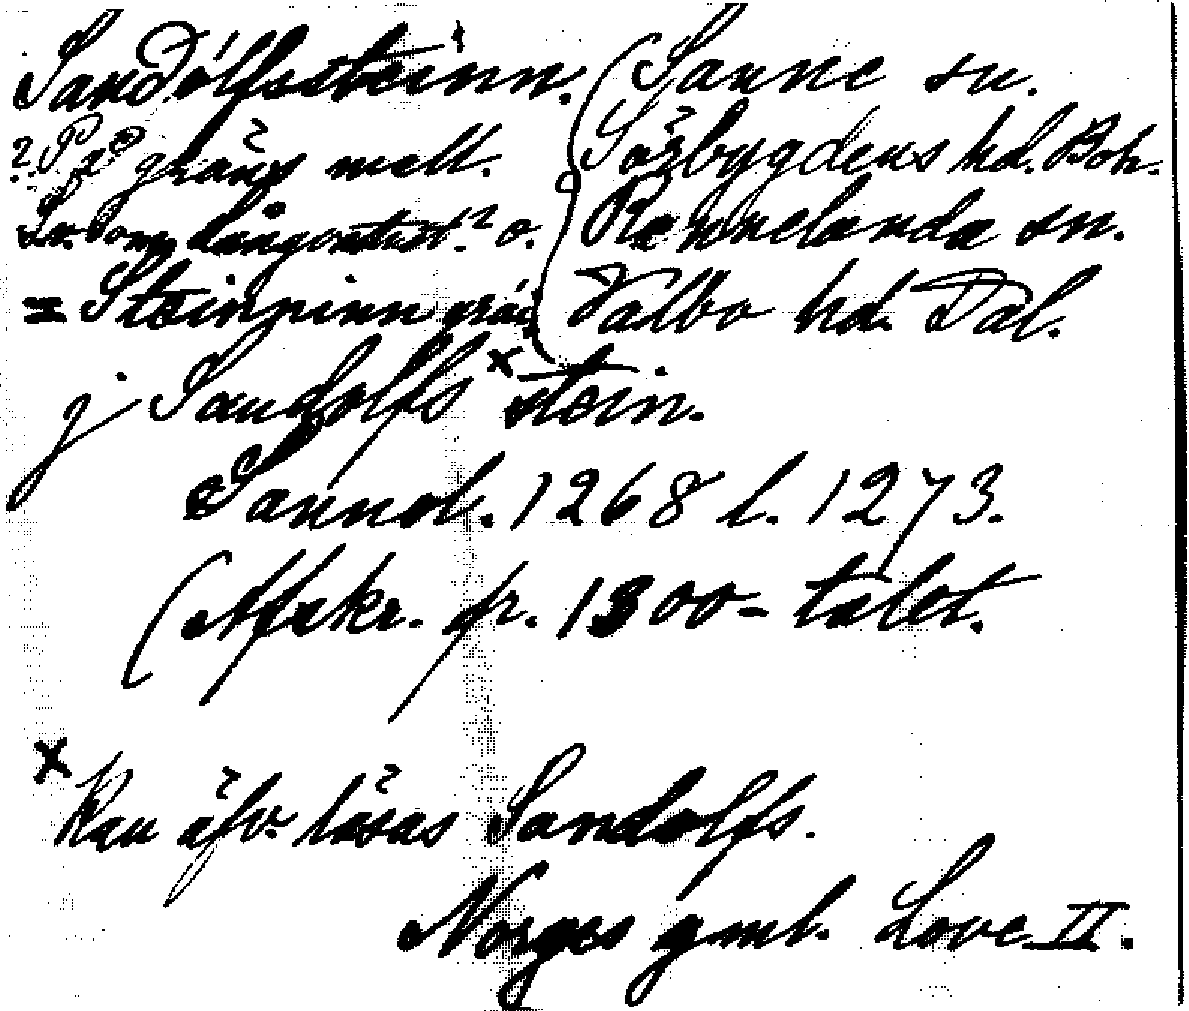 Sandólfssteinn. (Sanne sn.
? På gräns mell. Sörbygdens hd. Boh.
o. Rännelanda sn.
= Steinpinn Valbo hd. Dal.
j Sandolfs× stein.
Sannol. 1268 l. 1273.
(Afskr. fr. 1300-talet.
× Kan äfv. läsas Sandolfs.
Norges gml. Love II.